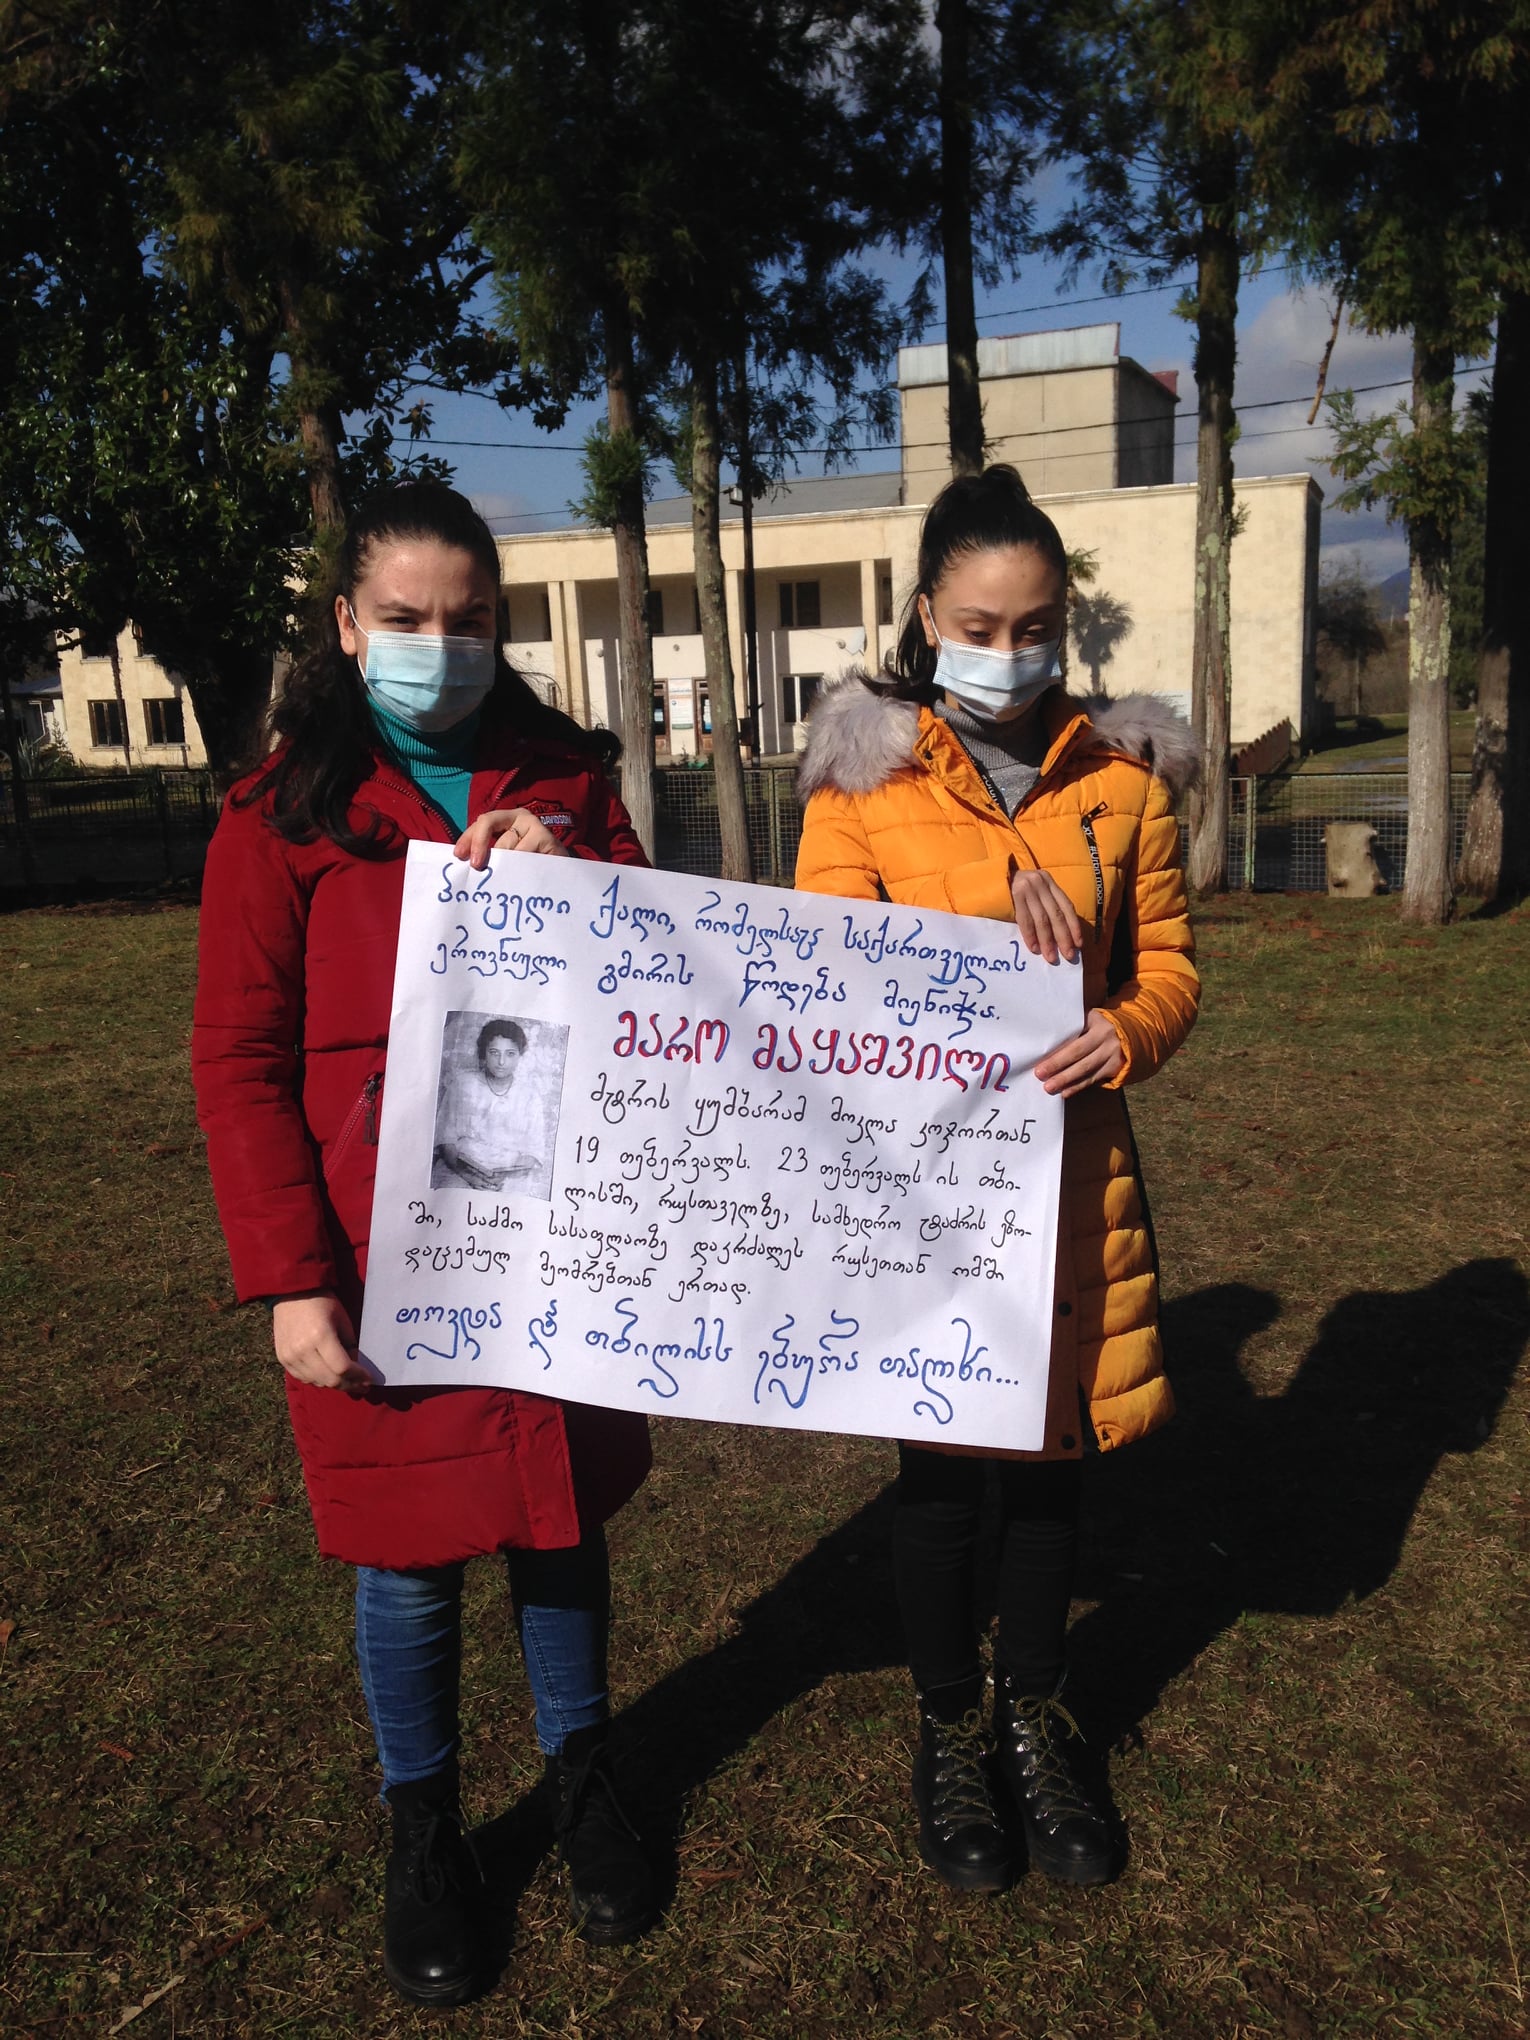 პირველი ქალი, რომელსაც საქართველოს
ეროვნული გმირის წოდება მიენიჭა.
მარო მაყაშვილი
მტრის ყუმბარამ მოკლა კოჯორთან
19 თებერვალს. 23 თებერვალს ის თბი-
ლისში, რუსთაველზე, სამხედრო ტაძრის ეზო-
ში, საძმო სასაფლაოზე დაკრძალეს რუსეთთან ომში
დაცემულ მეომრებთან ერთად.
თოვდა და თბილისს ებურა თალხი...
DAVIDSON